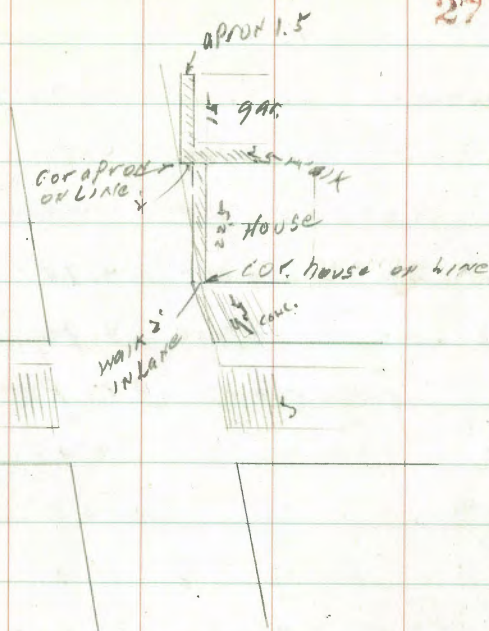 27
APRON 1.5
gar.
cor apron
ON LINE
House
cor. house on LINE
conc.
walk 2'
IN LANE
5